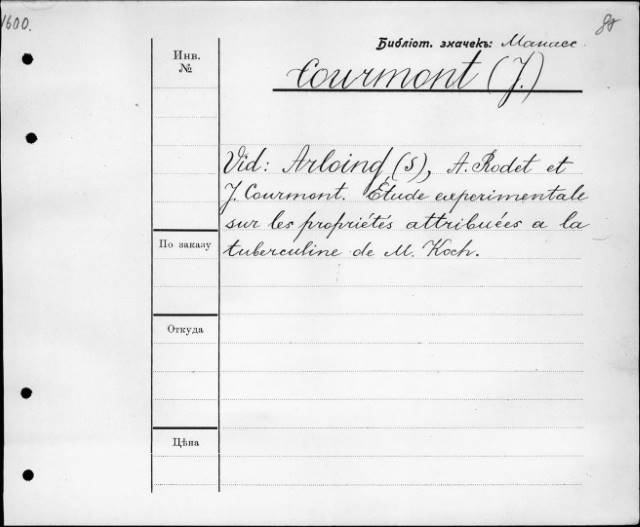 1600.
Библіот. значекъ:
Инв.
№
Courmont (J.)
Vid: Arloing (S), A. Rodet et
J. Courmont. Étude experimentale
sur les propriétés attribuées a la
По заказу
tuberculine de M. Koch.
Откуда
Цѣна